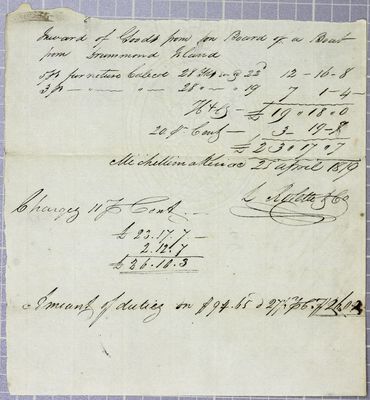 Inward of Goods from on Board of a Boat
from Drummond Island
ps furneture Calico 28 @ 22 12-16-8
3 p 28 19 7 1-4-
£19.18.0
20 p Cent - 3-19-8
£23.17.7
Michillimakinac 21 april 1819
L Rolette & Co
Charges 11 p Cent
£23.17.7
2.12.7
£26.10.3
Amount of duties on $94.65